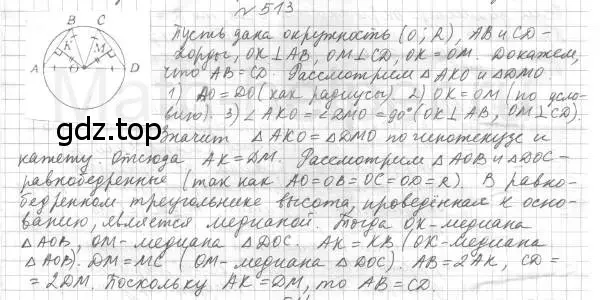 № 513
B C
K M
A O D
Пусть дана окружность (O; R), AB и CD –
хорды, OK ⊥ AB, OM ⊥ CD, OK = OM. Докажем,
что AB = CD. Рассмотрим △ AKO и △ DMO.
1) AO = DO (как радиусы), 2) OK = OM (по усло-
вию). 3) ∠ AKO = ∠ DMO = 90° (OK ⊥ AB, OM ⊥ CD).
Значит △ AKO = △ DMO по гипотенузе и
катету. Отсюда AK = DM. Рассмотрим △ AOB и △ DOC –
равнобедренные (так как AO = OB = OC = OD = R). В равно-
бедренном треугольнике высота, проведённая к осно-
ванию, является медианой. Тогда OK – медиана
△ AOB, OM – медиана △ DOC. AK = KB (OK – медиана
△ AOB). DM = MC (OM – медиана △ DOC). AB = 2AK, CD =
= 2DM. Поскольку AK = DM, то AB = CD.
gdz.top